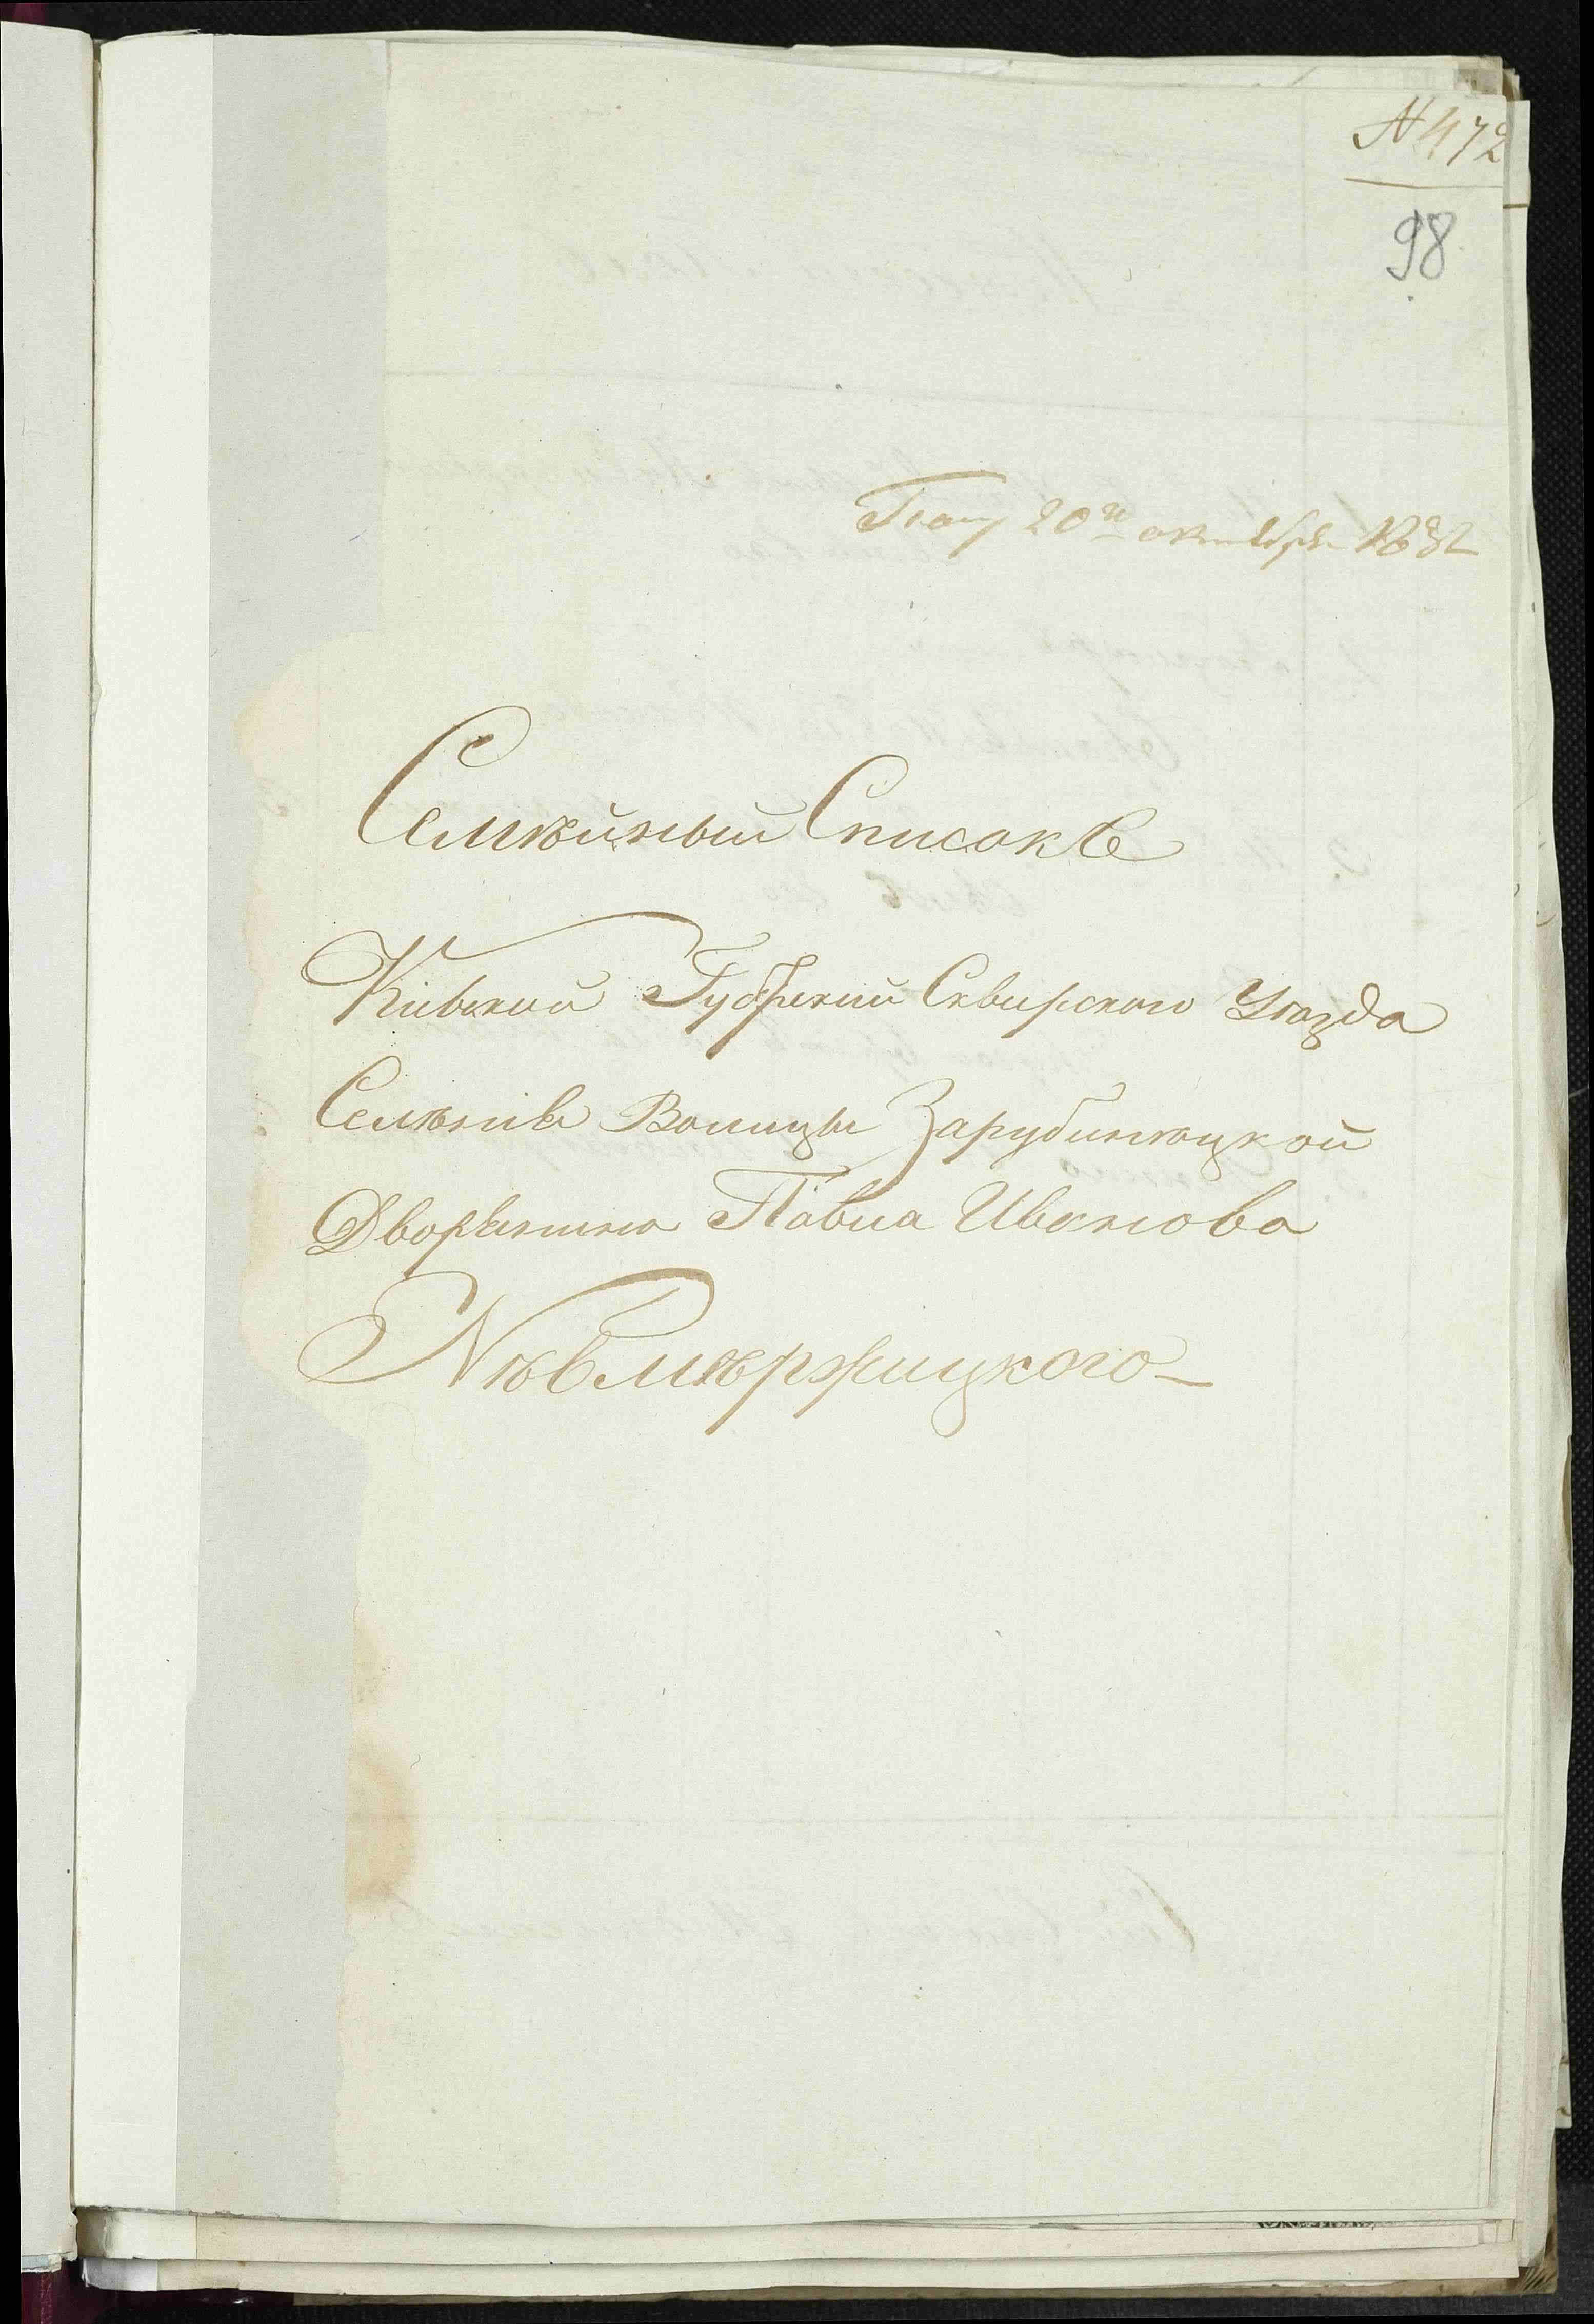 N 472
98
20го октября 1832
Семѣйный Списокъ
Кіевской Губерніи Сквирскаго Уѣзда
Селѣнія Волицы Зарубинѣцкой
Дворянина Павла Иванова
Нѣвмѣржицкого